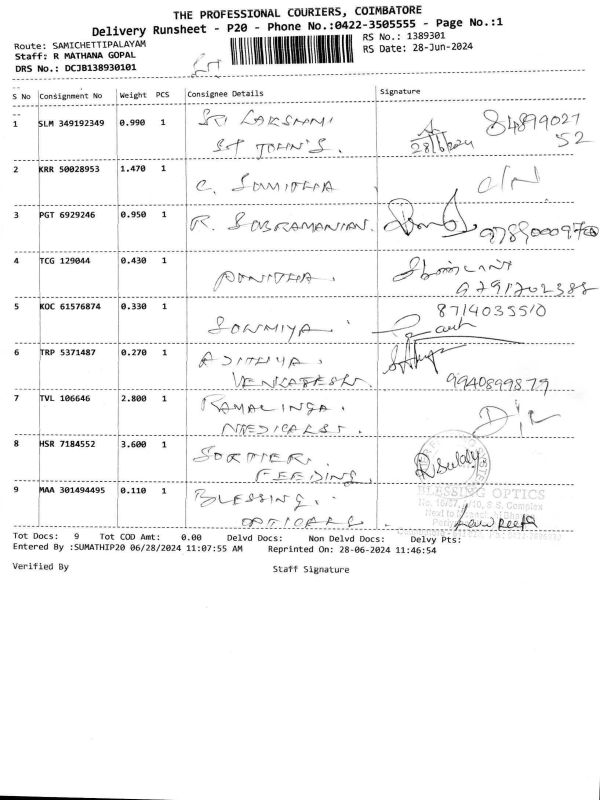 THE PROFESSIONAL COURIERS, COIMBATORE
Delivery Runsheet - P20 - Phone No.:0422-3505555 - Page No.:1
Route: SAMICHETTIPALAYAM
RS No.: 1389301
Staff: R MATHANA GOPAL
RS Date: 28-Jun-2024
DRS No.: DCJB138930101
S No Consignment No Weight PCS Consignee Details Signature
1 SLM 349192349 0.990 1 SRI LAKSHMI 84899027
ST JOHN'S. 28/6/2024 52
2 KRR 50028953 1.470 1
C. SUMITHA
3 PGT 6929246 0.950 1 R. SUBRAMANIAN.
4 TCG 129044 0.430 1
PUNITHA. 9791202388
5 KOC 61576874 0.330 1 8714035510
SOWMIYA
6 TRP 5371487 0.270 1 ADITHYA.
VENKATESH. 9940899879
7 TVL 106646 2.800 1 RAMALINGA.
MEDICALS.
8 HSR 7184552 3.600 1
FEEDING.
9 MAA 301494495 0.110 1 BLESSING. BLESSING OPTICS
OPTICALS
Tot Docs: 9 Tot COD Amt: 0.00 Delvd Docs: Non Delvd Docs: Delvy Pts:
Entered By :SUMATHIP20 06/28/2024 11:07:55 AM Reprinted On: 28-06-2024 11:46:54
Verified By Staff Signature